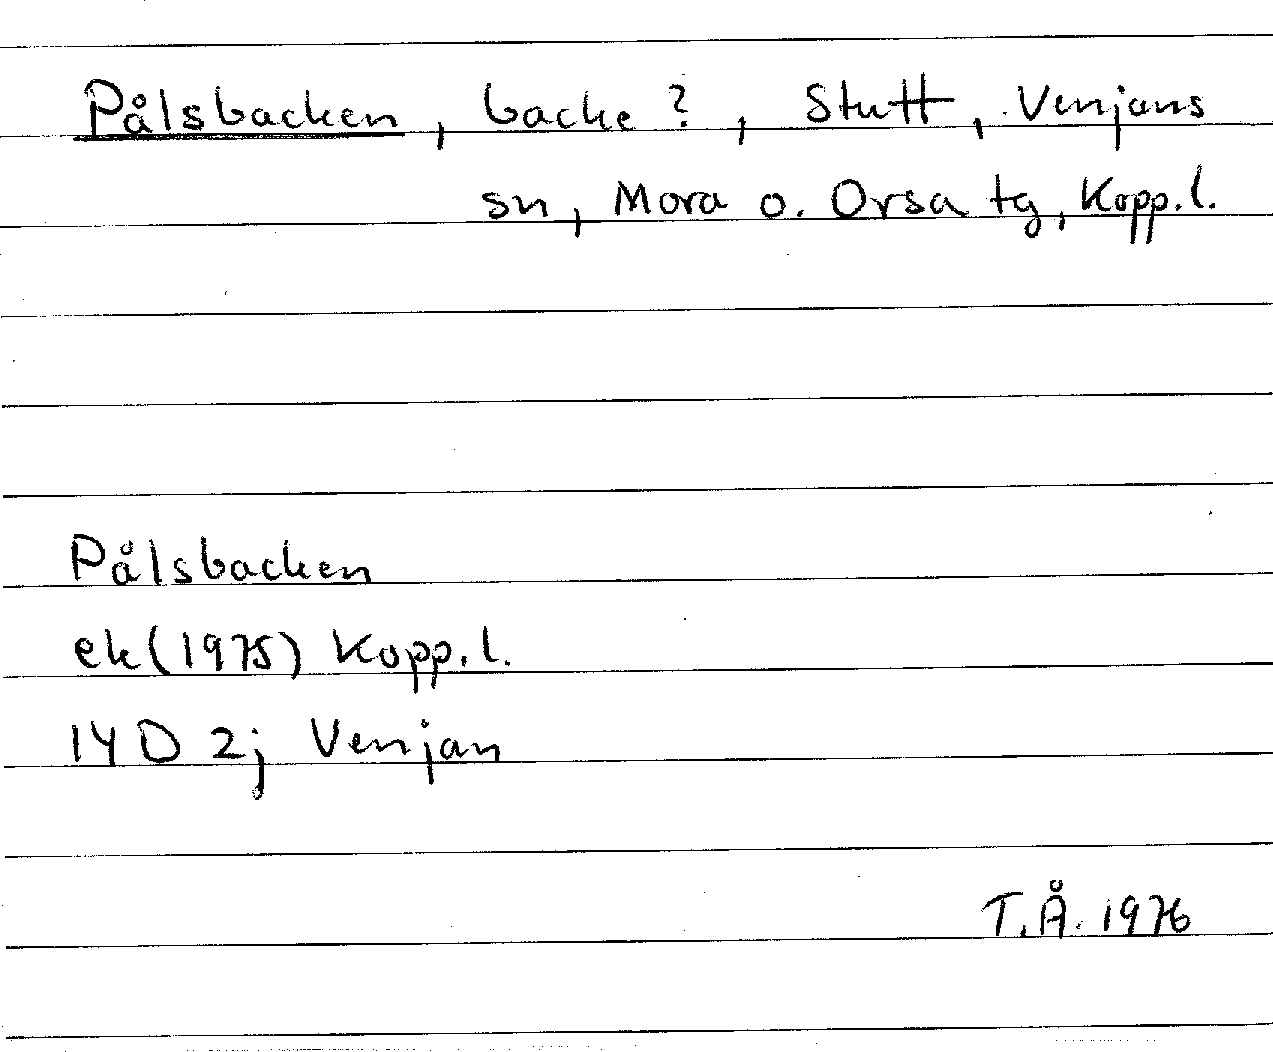 Pålsbacken, backe?, Stutt, Venjans
sn, Mora o. Orsa tg, Kopp.l.
Pålsbacken
ek(1975) Kopp.l.
14 D 2j Venjan
T.Å. 1976